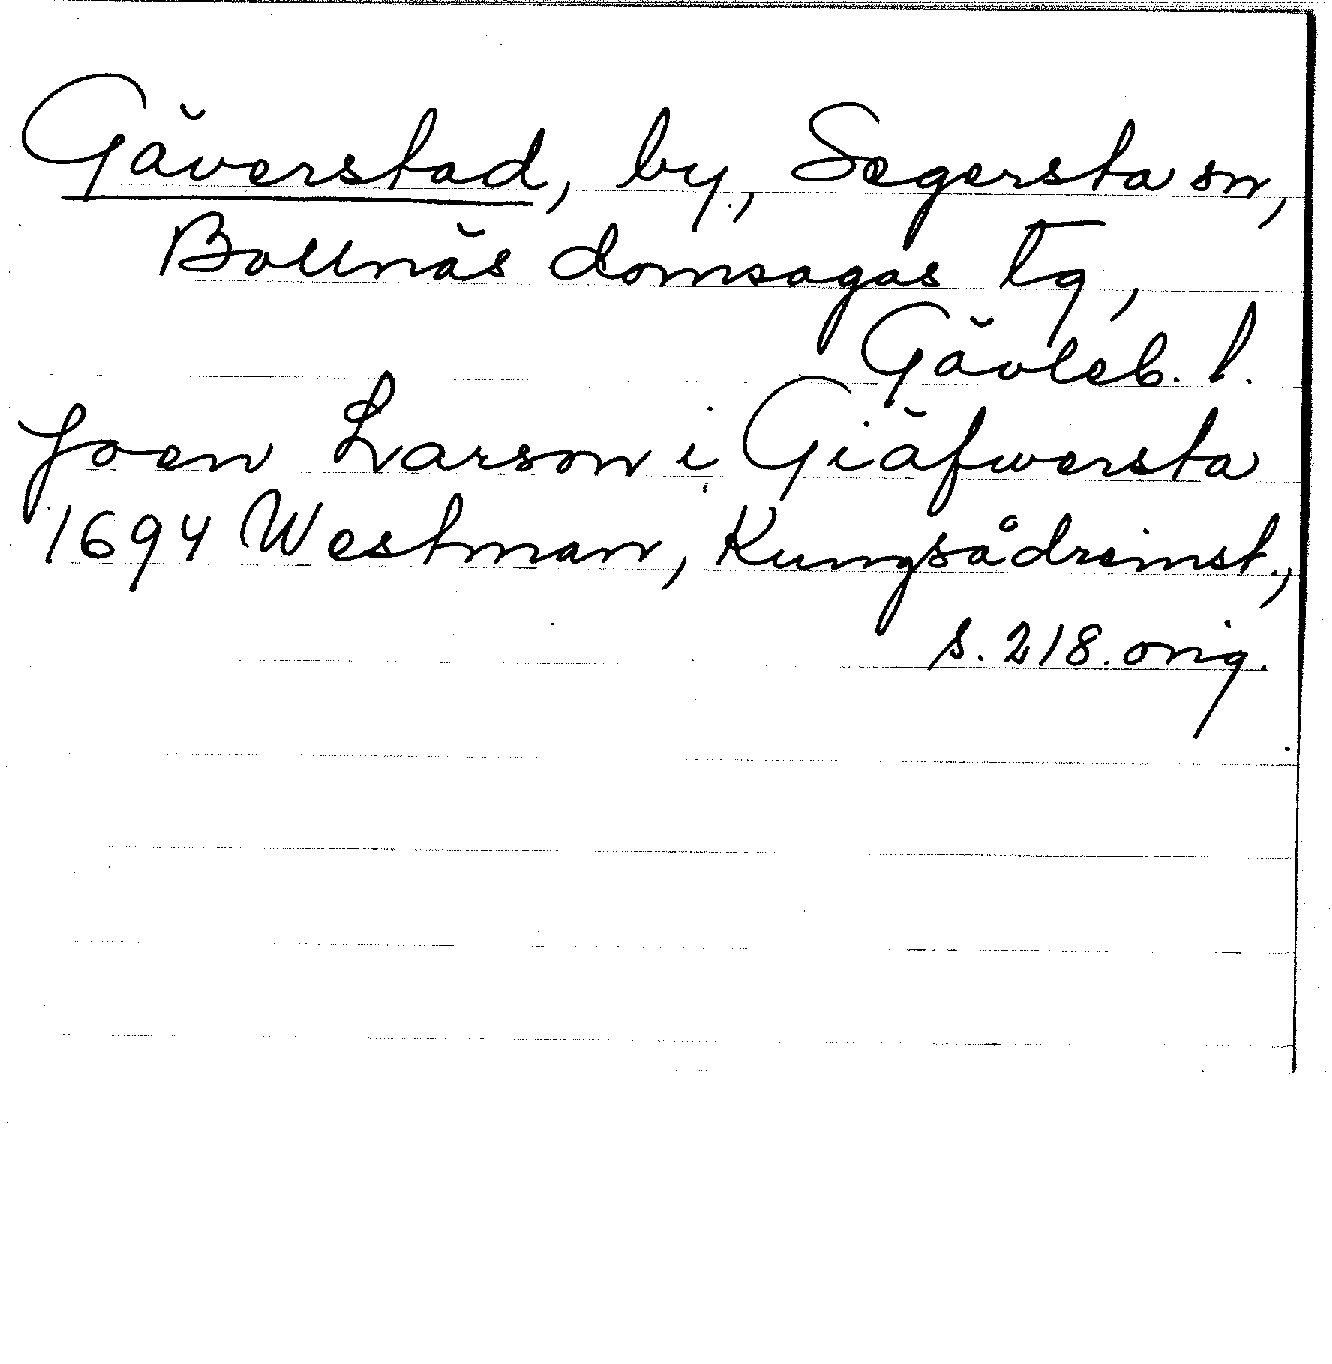 Gäverstad, by, Segersta sn,
Bollnäs domsagas tg,
Gävleb. l.
Joen Larson i Giäfwersta
1694 Westman, Kungsådreinst.,
s. 218. orig.